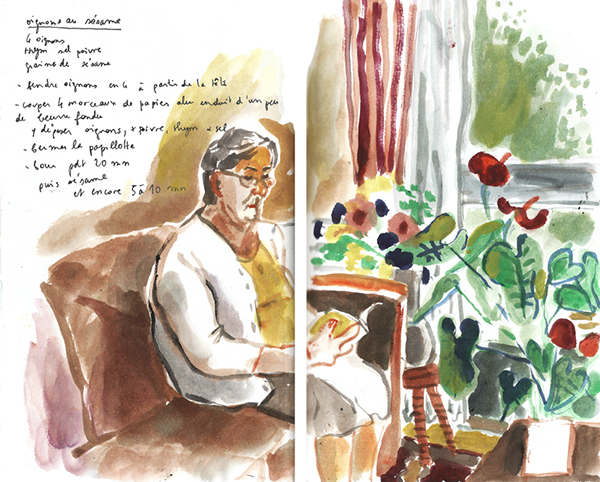 oignons au sésame
4 oignons
thym sel poivre
graines de sésame
- fendre oignons en 4 à partir de la tête
- couper 4 morceaux de papier alu enduit d'un peu
de beurre fondu
y déposer oignons, + poivre, thym + sel
- fermer la papillotte
- four pdt 20 mn
puis sésame
et encore 5 à 10 mn